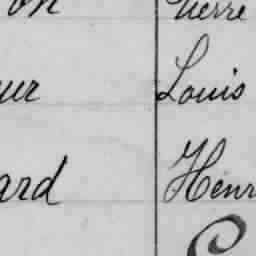 on Pierre
ur Louis
ard Henr